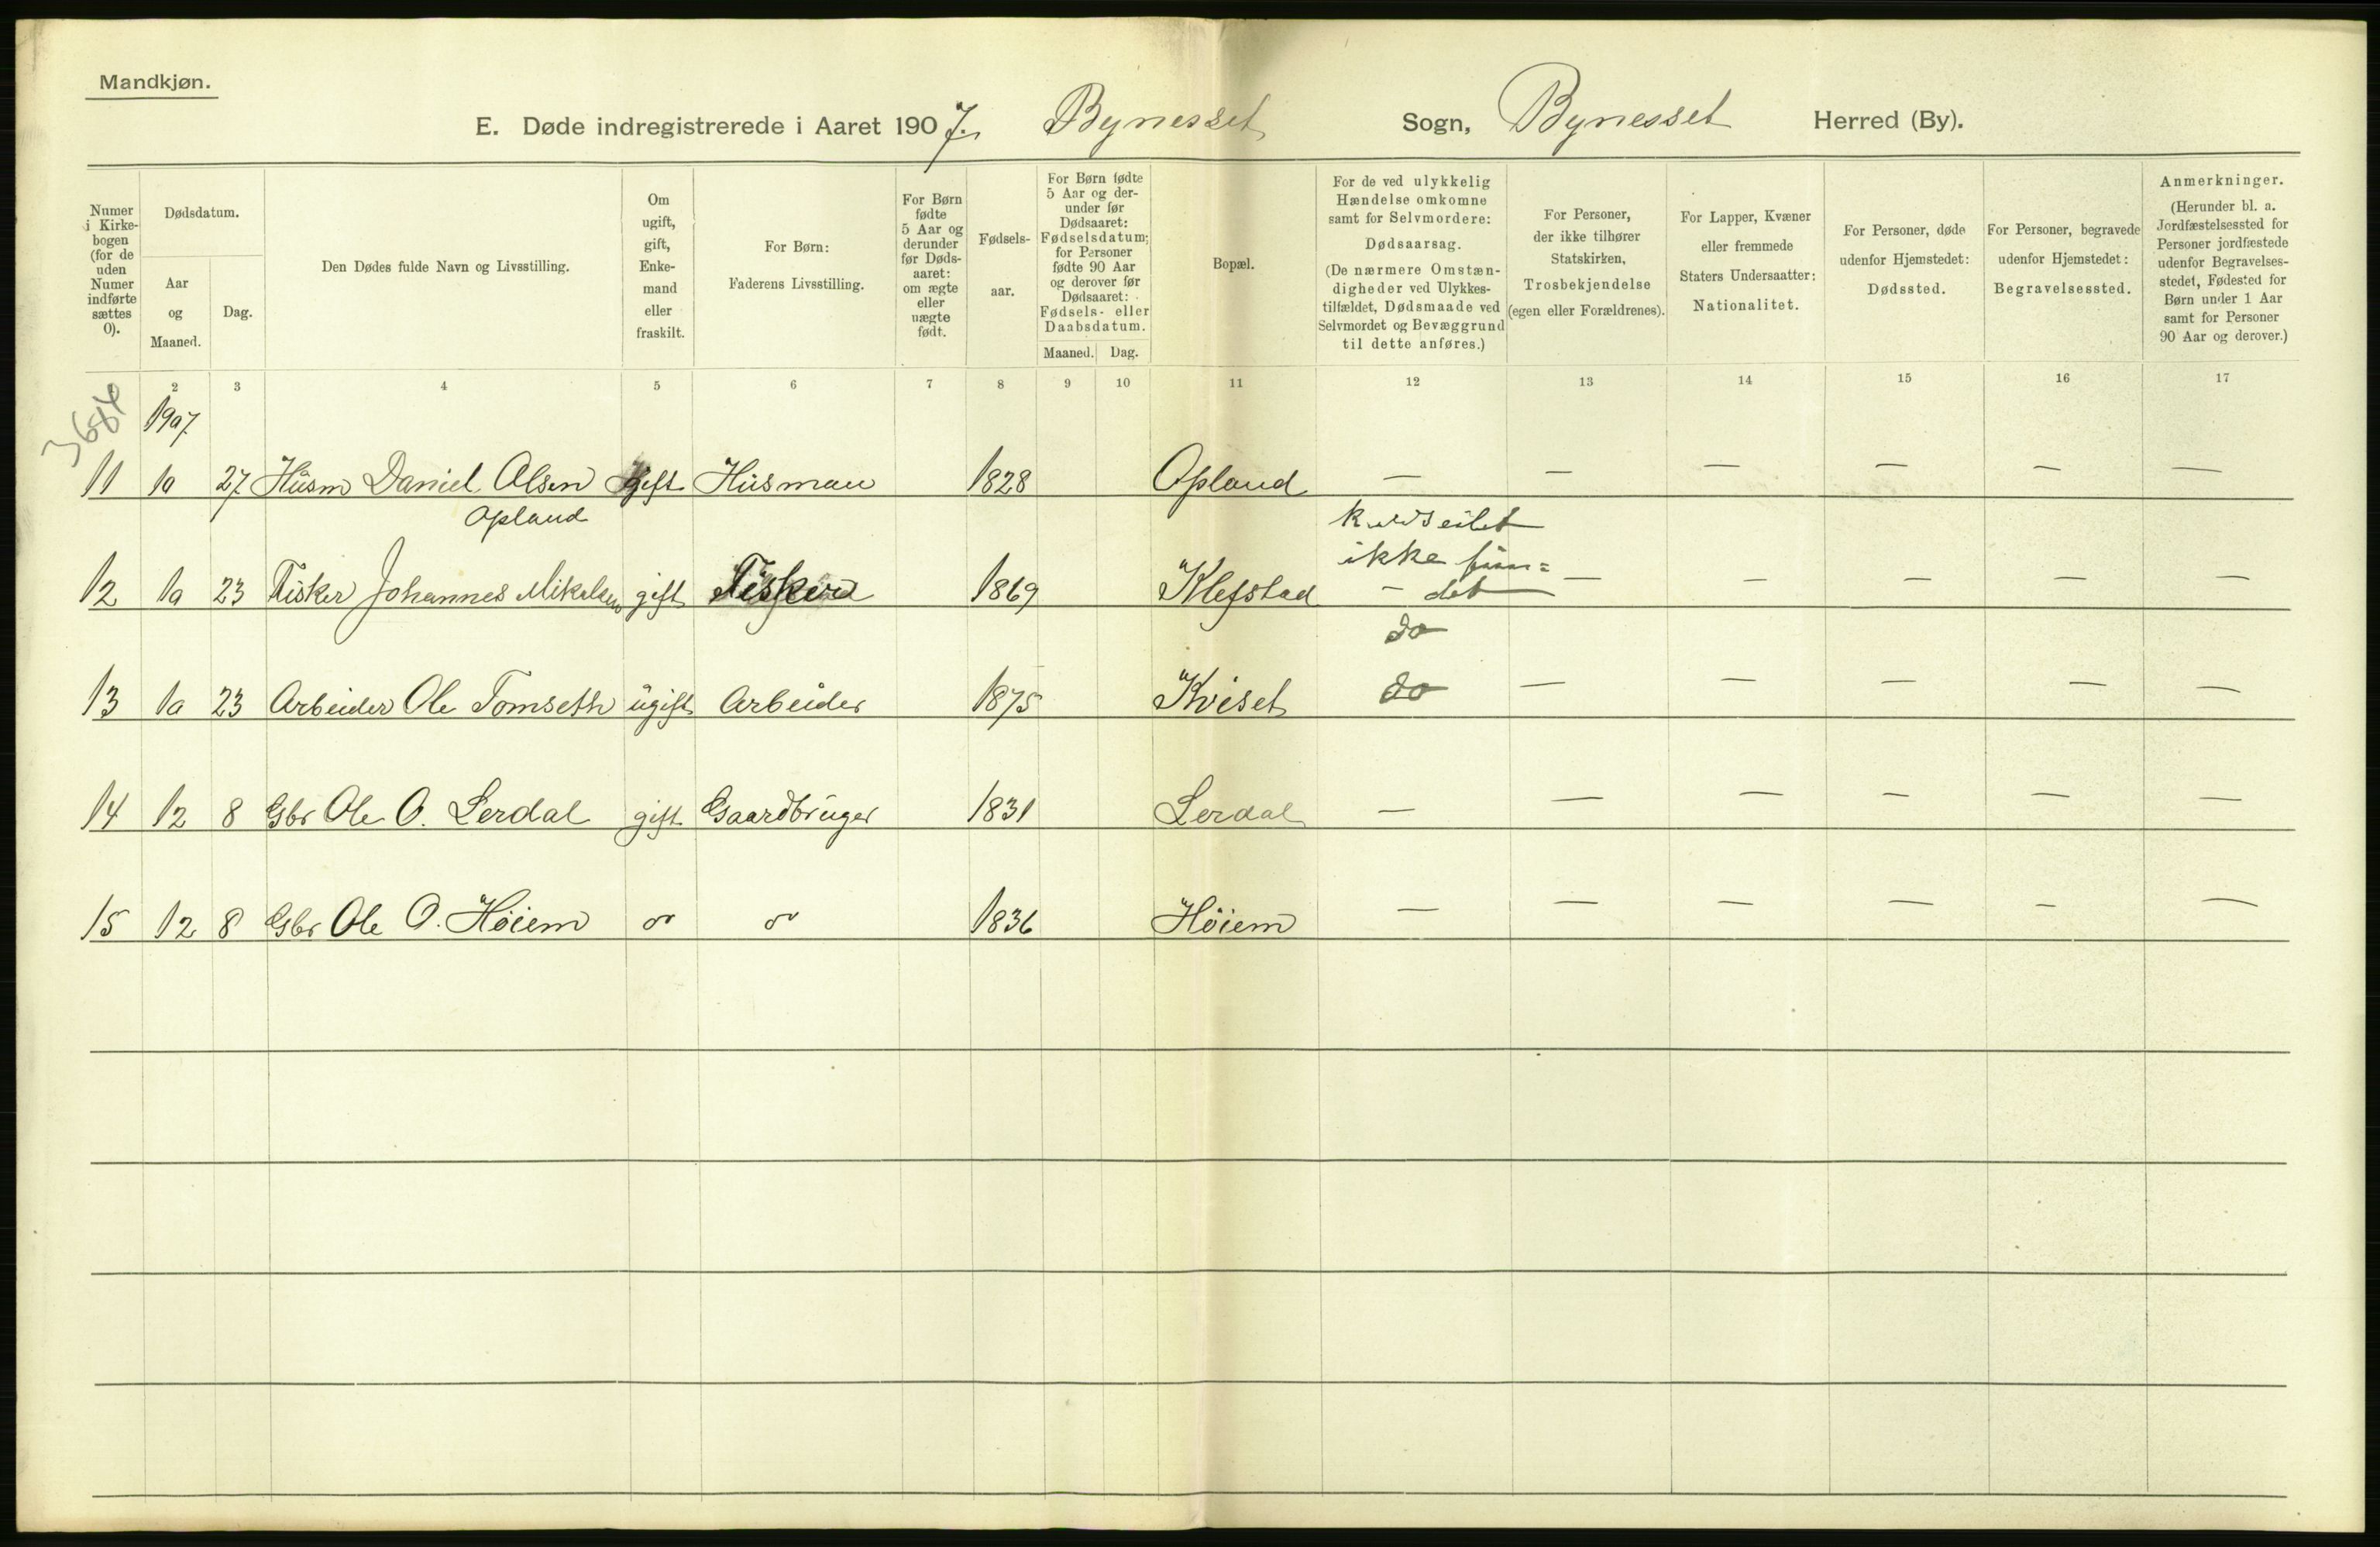 Mandkjøn.
E. Døde indregistrerede i Aaret 1907. Bynesset Sogn, Bynesset Herred (By).
Numer i Kirkebogen (for de uden Numer indførte sættes 0).
Dødsdatum.
Aar og Maaned.
Dag.
Den Dødes fulde Navn og Livsstilling.
Om ugift, gift, Enkemand eller fraskilt.
For Børn: Faderens Livsstilling.
For Børn fødte 5 Aar og derunder før Dødsaaret: om ægte eller uægte født.
Fødselsaar.
For Børn fødte 5 Aar og derunder før Dødsaaret: Fødselsdatum; for Personer fødte 90 Aar og derover før Dødsaaret: Fødsels- eller Daabsdatum.
Maaned. Dag.
Bopæl.
For de ved ulykkelig Hændelse omkomne samt for Selvmordere: Dødsaarsag. (De nærmere Omstændigheder ved Ulykkestilfældet, Dødsmaade ved Selvmordet og Bevæggrund til dette anføres.)
For Personer, der ikke tilhører Statskirken, Trosbekjendelse (egen eller Forældrenes).
For Lapper, Kvæner eller fremmede Staters Undersaatter: Nationalitet.
For Personer, døde udenfor Hjemstedet: Dødssted.
For Personer, begravede udenfor Hjemstedet: Begravelsessted.
Anmerkninger. (Herunder bl. a. Jordfæstelsessted for Personer jordfæstede udenfor Begravelsesstedet, Fødested for Børn under 1 Aar samt for Personer 90 Aar og derover.)
2 3 4 5 6 7 8 9 10 11 12 13 14 15 16 17
1907
11 10 27 Husm Daniel Olsen gift Husman 1828 Opland — — — — — —
Opland
kuldseilet
ikke fun=
12 10 23 Fisker Johannes Mikalsen gift Fisker 1869 Klefstad - det — — — — —
do
13 10 23 Arbeider Ole Tomseth ugift Arbeider 1875 Kviset do — — — — —
14 12 8 Gbr Ole O. Lerdal gift Gaardbruger 1831 Lerdal — — — — — —
15 12 8 Gbr Ole O. Høiem " " 1836 Høiem — — — — — —